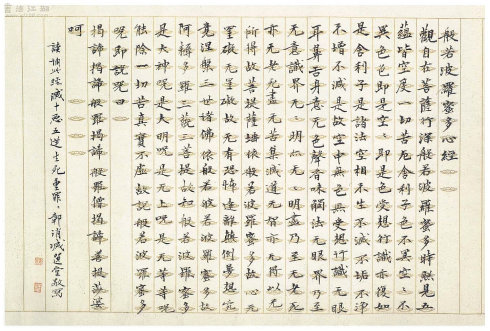 般若波羅蜜多心經
觀自在菩薩行深般若波羅蜜多時照見五
蘊皆空度一切苦厄舍利子色不異空空不
異色色即是空空即是色受想行識亦復如
是舍利子是諸法空相不生不滅不垢不淨
不增不減是故空中無色無受想行識无眼
耳鼻舌身意无色聲香味觸法无眼界乃至
无意識界无无明亦无无明盡乃至无老死
亦无老死盡无苦集滅道无智亦无得以无
所得故菩提薩埵依般若波羅蜜多故心无
罣礙无罣礙故无有恐怖遠離顛倒夢想究
竟涅槃三世諸佛依般若波羅蜜多故得
阿耨多羅三藐三菩提故知般若波羅蜜多
是大神呪是大明呪是无上呪是无等等呪
能除一切苦真實不虛故說般若波羅蜜多
呪即說呪曰
揭諦揭諦般羅揭諦般羅僧揭諦菩提薩婆
訶
誦此經滅十惡五逆生死重罪都消滅蓮堂敬寫
書法江湖